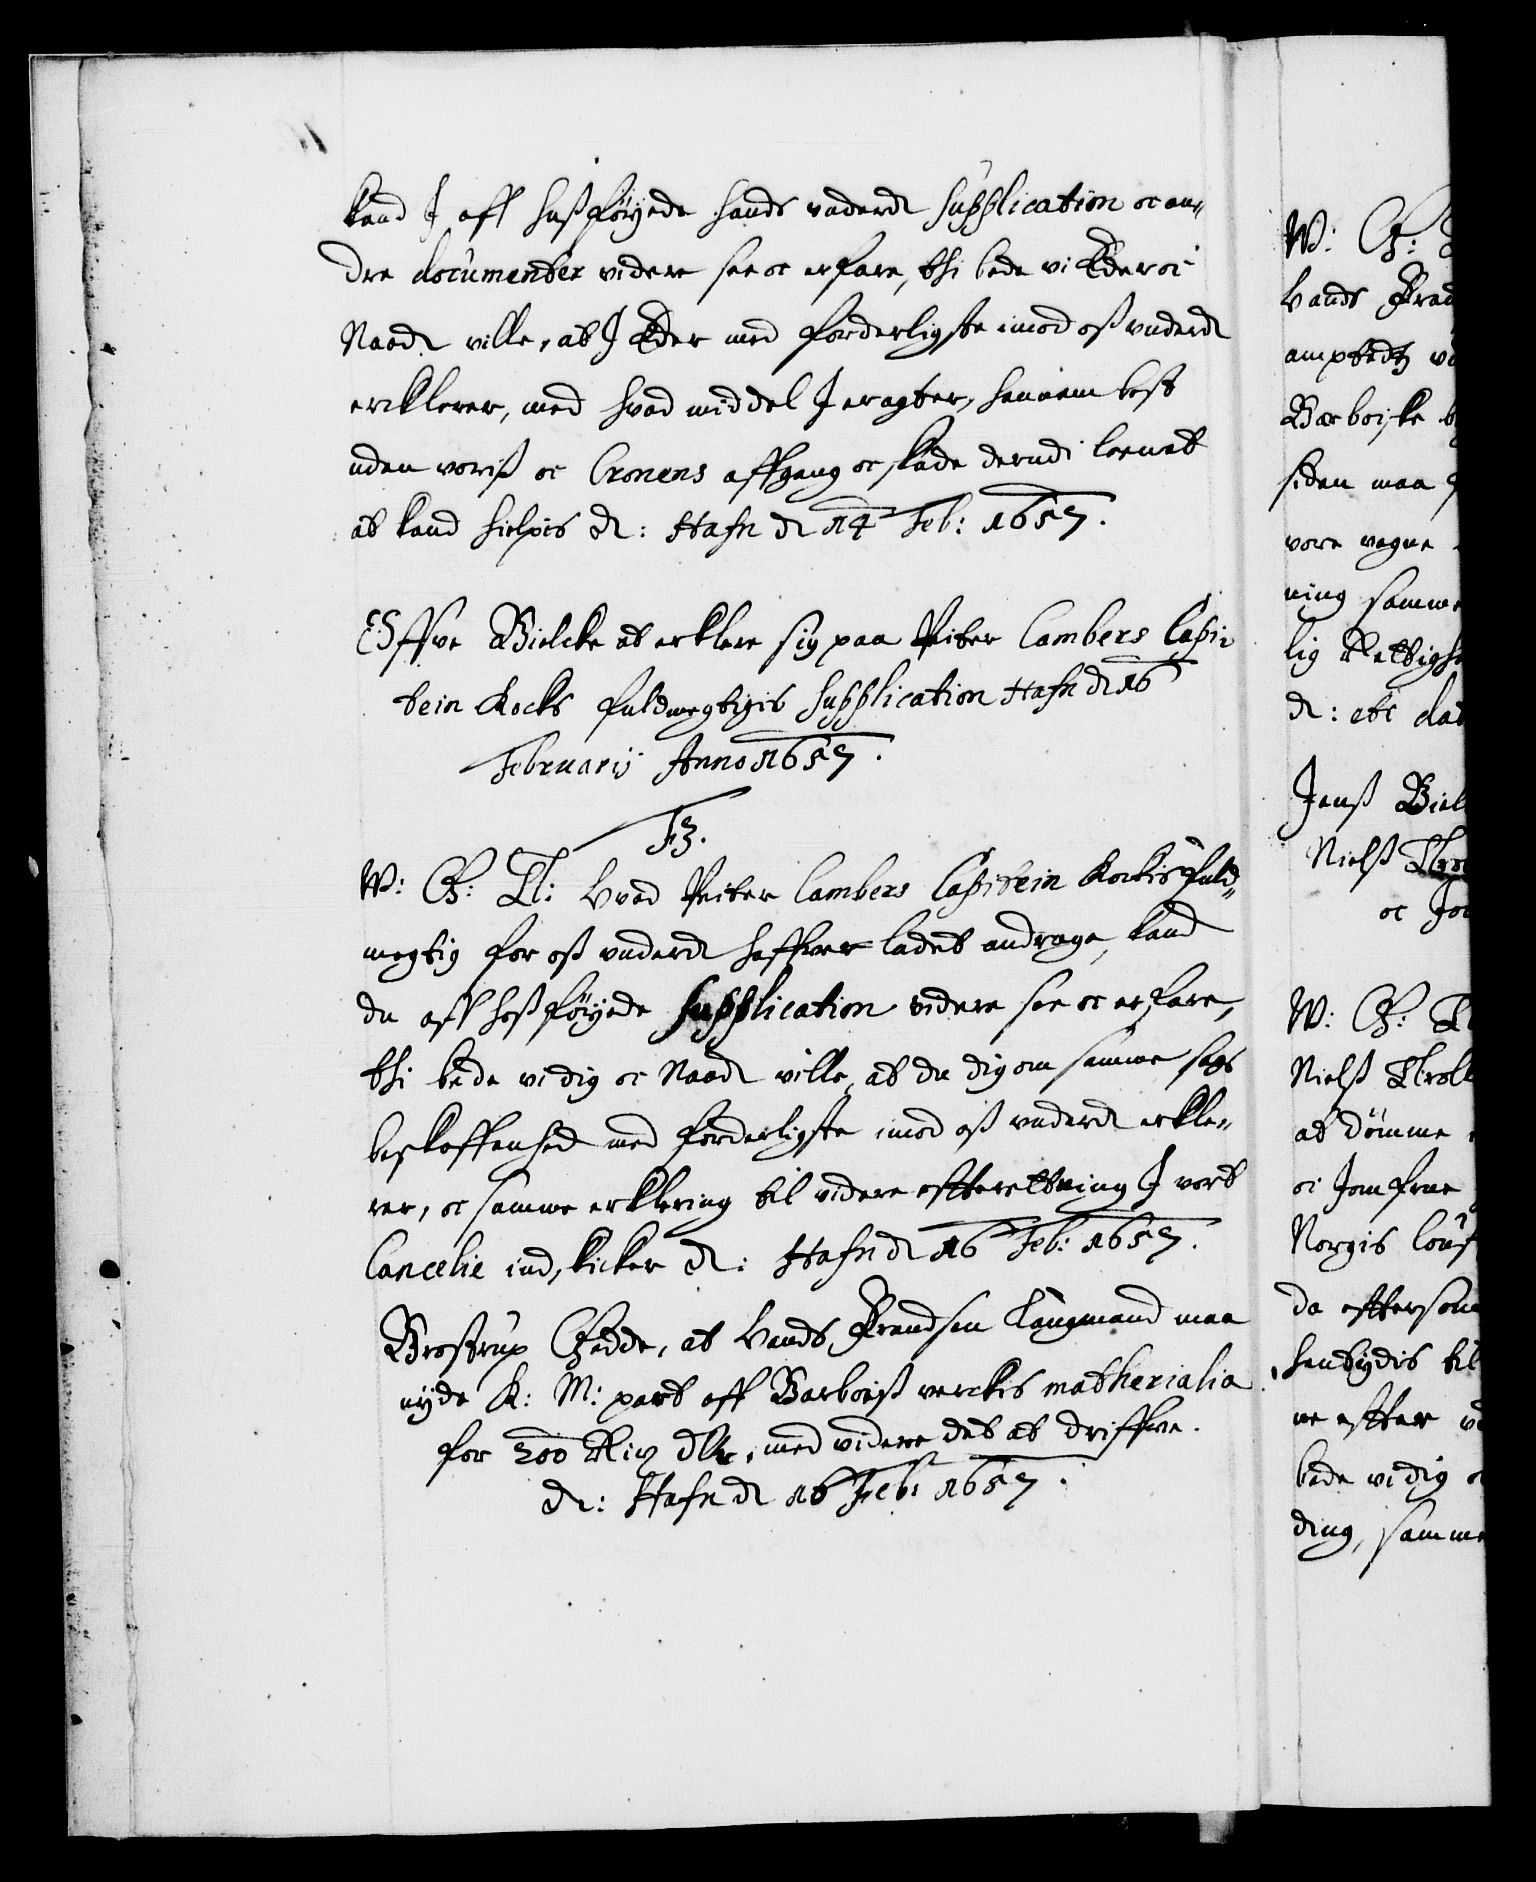 kand I aff hußføyede hands underd: Supplication oc an¬
dre documenter videre see oc erfare, thi bede vi Eder oc
Naad: ville, at I Eder med forderligste imod oß underd:
ercklerer, med hvad middel I eragter, hannem best
uden voriß oc Cronens affgang oc skade derudi loenet
at kand hielpis d: Hafn d 14 Feb: 1657.
Offve Bielcke at erklere sig paa Peiter Lambers Capi¬
tein Kocks fuldmegtigis Supplication Hafn d 16
Februarij Anno 1657.
F3.
W: G: T: Hvad Peiter Lambers Capitein Kockis fuld¬
megtig for oß underd: haffver ladet andrage, kand
du aff hoßføyede Supplication videre see oc erfare,
thi bede vi dig oc Naad: ville, at du dig om samme sags
beskaffenhed med forderligste imod oß underd: erkle¬
rer, oc samme erklering til videre effterettning I vort
Cancelie indskicker d: Hafn d 16 Feb: 1657.
Brostrup Gedde, at Hands Frandsen Laugmand maa
nyde K: M: part aff Barboiß verckis matherialia
for 200 Rix dlr, med videre det at driffve.
d: Hafn d 16 Feb: 1657.
W: G:
Hands Fran
amptedtz
Barboiske
siden maa
vore vegne
ning samme
lig Rettighe
d: etc dat
Jenß Biel
Nielß Tro
oc Jo
W: G: T
Nielß Troll
at dömme
oc Jomfrue
Norgis
da effterso
henbydis til
ne effter
bede vi dig oc
ding, samme